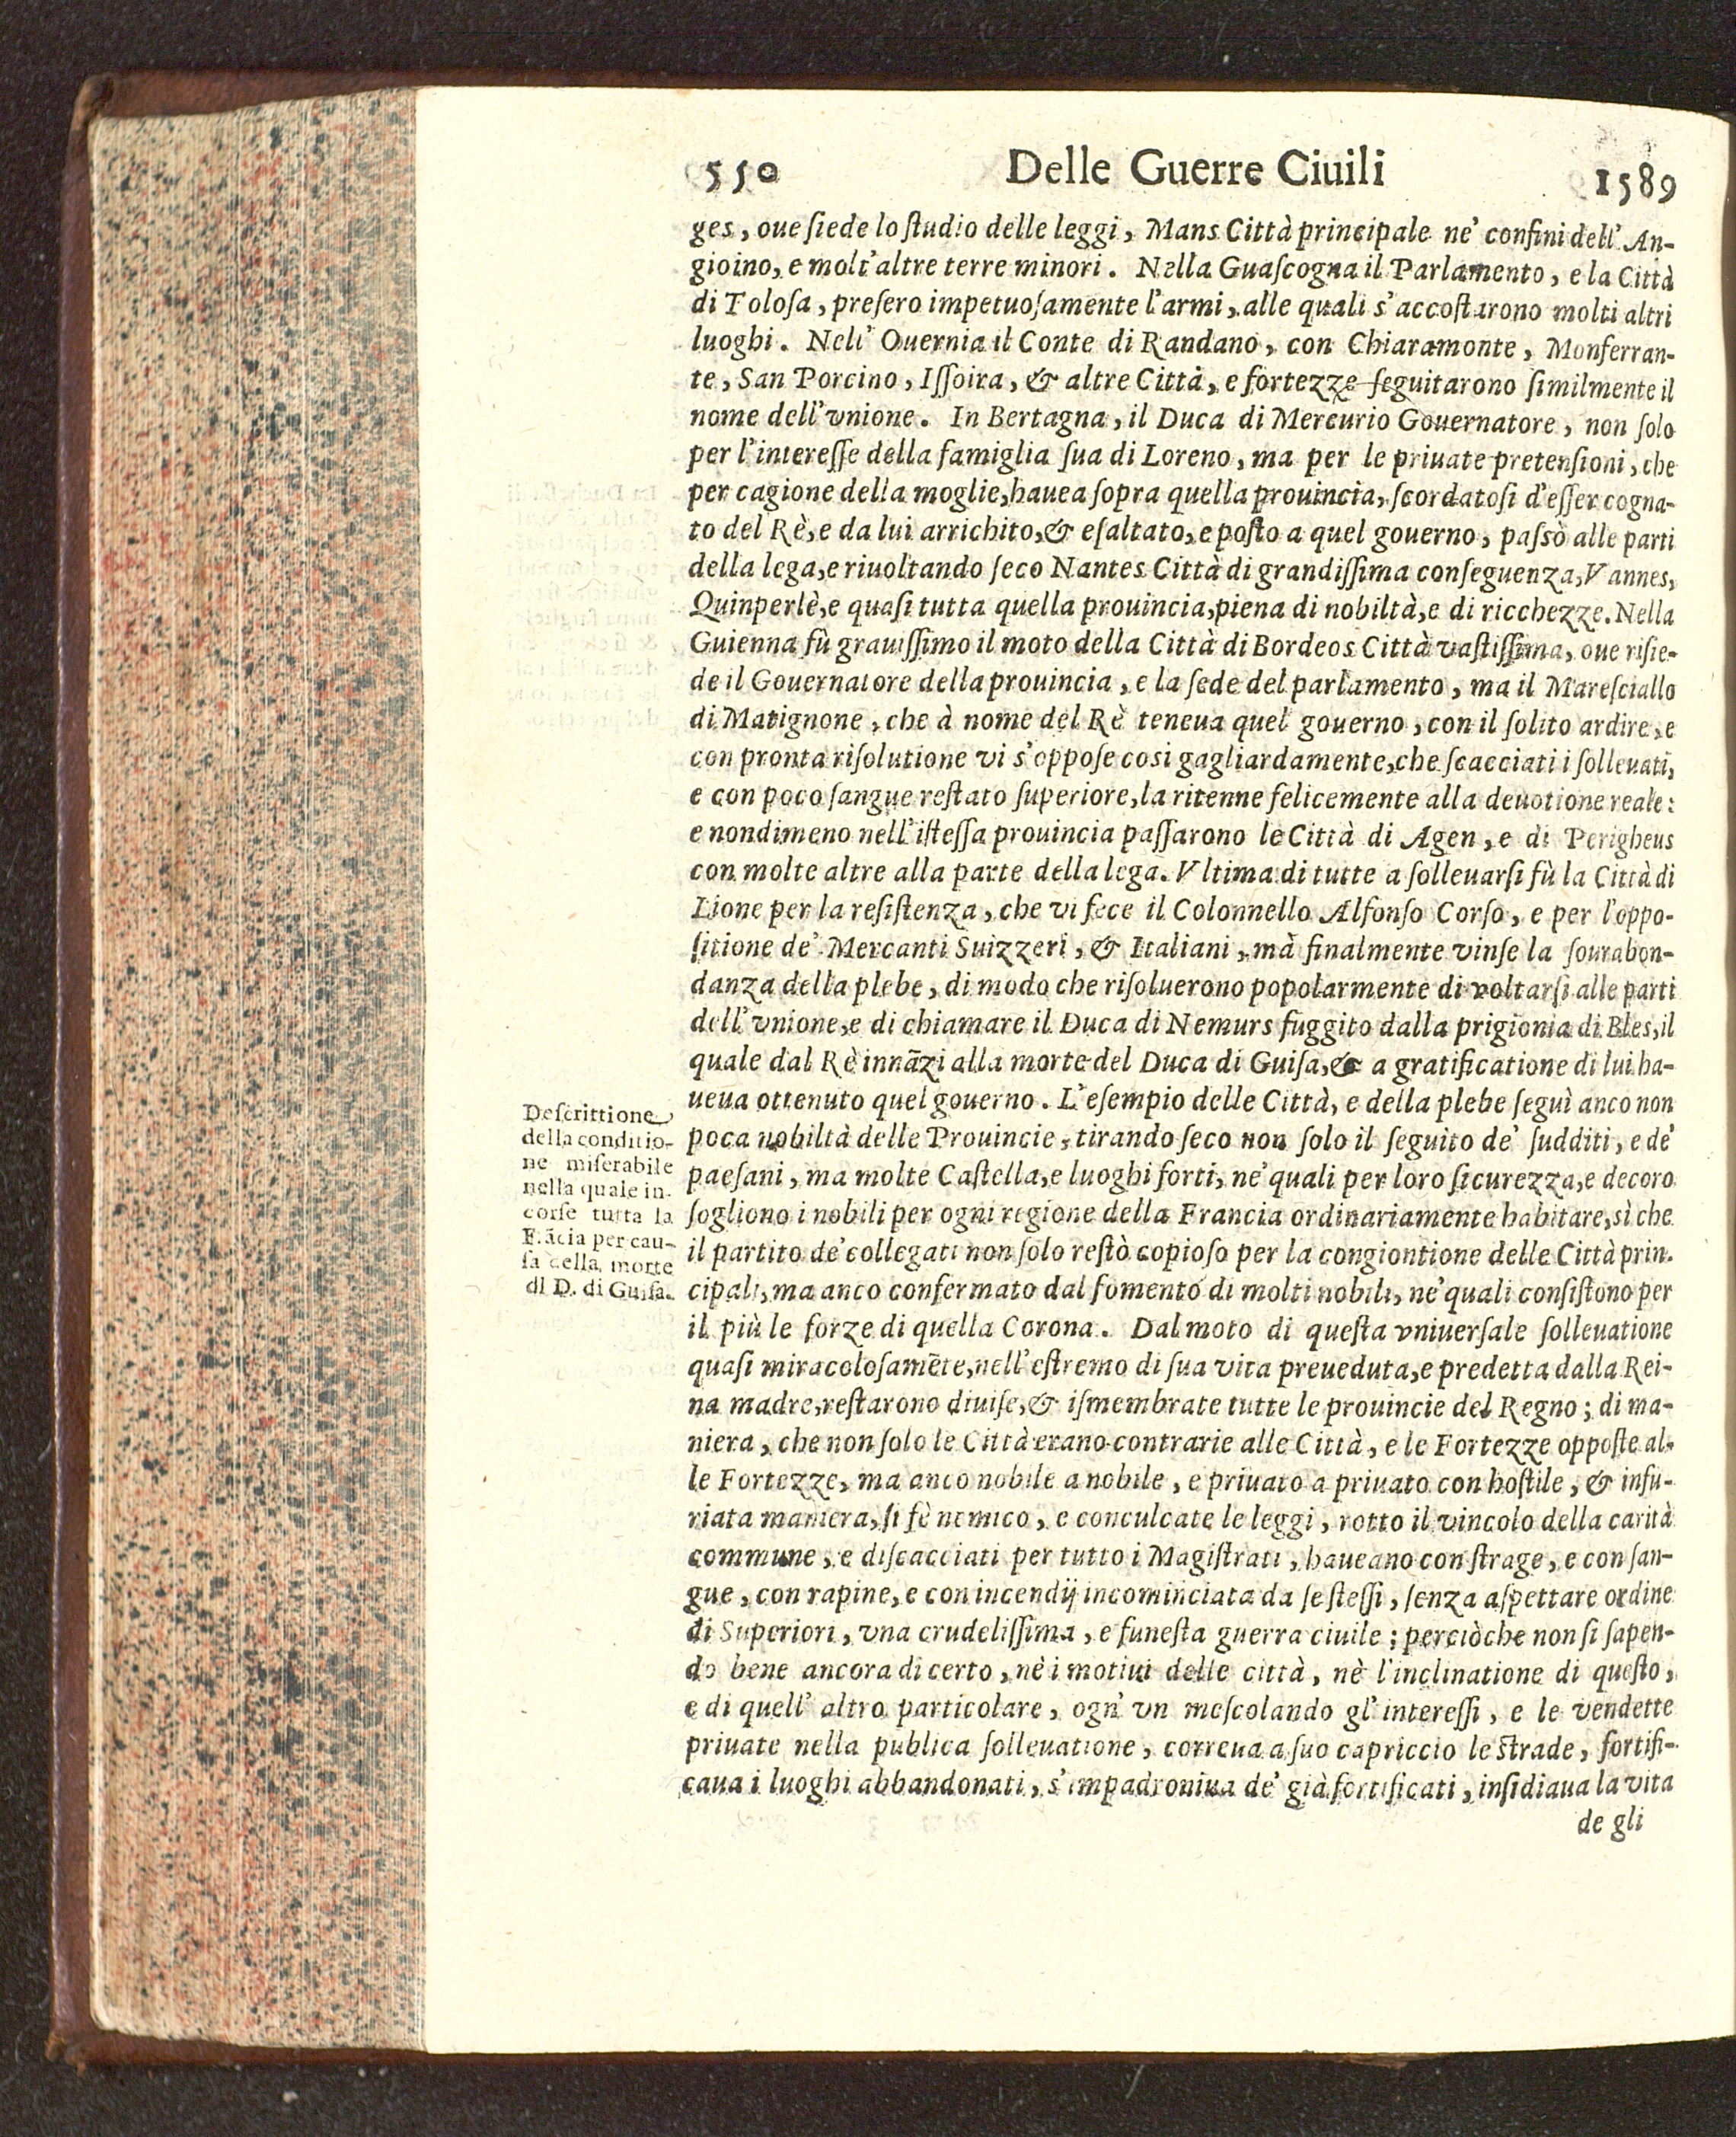 550 Delle Guerre Ciuili 1589
ges, oue ſiede lo ſtudio delle leggi, Mans Città principale ne' confini dell' An-
gioino, e molt'altre terre minori. Nella Guaſcogna il Parlamento, e la Città
di Toloſa, preſero impetuoſamente l'armi, alle quali s'accoſtarono molti altri
luoghi. Nell' Ouernia il Conte di Randano, con Chiaramonte, Monferran-
te, San Porcino, Iſſoira, & altre Città, e fortezze ſeguitarono ſimilmente il
nome dell'vnione. In Bertagna, il Duca di Mercurio Gouernatore, non ſolo
per l'intereſſe della famiglia ſua di Loreno, ma per le priuate pretenſioni, che
per cagione della moglie, hauea ſopra quella prouincia, ſcordatoſi d'eſſer cogna-
to del Rè, e da lui arrichito, & eſaltato, e poſto a quel gouerno, paſsò alle parti
della lega, e riuoltando ſeco Nantes Città di grandiſſima conſeguenza, Vannes,
Quinperlè, e quaſi tutta quella prouincia, piena di nobiltà, e di ricchezze. Nella
Guienna fù grauiſſimo il moto della Città di Bordeos Città vaſtiſſima, oue riſie-
de il Gouernatore della prouincia, e la ſede del parlamento, ma il Mareſciallo
di Matignone, che à nome del Rè teneua quel gouerno, con il ſolito ardire, e
con pronta riſolutione vi s'oppoſe cosi gagliardamente, che ſcacciati i ſolleuati,
e con poco ſangue reſtato ſuperiore, la ritenne felicemente alla deuotione reale:
e nondimeno nell'iſteſſa prouincia paſſarono le Città di Agen, e di Perigheus
con molte altre alla parte della lega. Vltima di tutte a ſolleuarſi fù la Città di
Lione per la reſiſtenza, che vi fece il Colonnello Alfonſo Corſo, e per l'oppo-
ſitione de' Mercanti Suizzeri, & Italiani, mà finalmente vinſe la ſourabon-
danza della plebe, di modo che riſoluerono popolarmente di voltarſi alle parti
dell'vnione, e di chiamare il Duca di Nemurs fuggito dalla prigionia di Bles, il
quale dal Rè innãzi alla morte del Duca di Guiſa, & a gratificatione di lui ha-
ueua ottenuto quel gouerno. L'eſempio delle Città, e della plebe ſeguì anco non
poca nobiltà delle Prouincie, tirando ſeco non ſolo il ſeguito de' ſudditi, e de'
paeſani, ma molte Caſtella, e luoghi forti, ne'quali per loro ſicurezza, e decoro
ſogliono i nobili per ogni regione della Francia ordinariamente habitare, sì che
il partito de'collegati non ſolo reſtò copioſo per la congiontione delle Città prin-
cipali, ma anco confermato dal fomento di molti nobili, ne'quali conſiſtono per
il più le forze di quella Corona. Dal moto di queſta vniuerſale ſolleuatione
quaſi miracoloſamẽte, nell'eſtremo di ſua vita preueduta, e predetta dalla Rei-
na madre, reſtarono diuiſe, & iſmembrate tutte le prouincie del Regno; di ma-
niera, che non ſolo le Città erano contrarie alle Città, e le Fortezze oppoſte al-
le Fortezze, ma anco nobile a nobile, e priuato a priuato con hoſtile, & infu-
riata maniera, ſi fè nemico, e conculcate le leggi, rotto il vincolo della carità
commune, e diſcacciati per tutto i Magiſtrati, haueano con ſtrage, e con ſan-
gue, con rapine, e con incendij incominciata da ſe ſteſſi, ſenza aſpettare ordine
di Superiori, vna crudeliſſima, e funeſta guerra ciuile; perciòche non ſi ſapen-
do bene ancora di certo, nè i motiui delle città, nè l'inclinatione di queſto,
e di quell' altro particolare, ogn' vn meſcolando gl'intereſſi, e le vendette
priuate nella publica ſolleuatione, correua a ſuo capriccio le ſtrade, fortifi-
caua i luoghi abbandonati, s'impadroniua de' già fortificati, inſidiaua la vita
de gli
Deſcrittione
della conditio-
ne miſerabile
nella quale in-
corſe tutta la
Frãcia per cau-
ſa della morte
di D. di Guiſa.